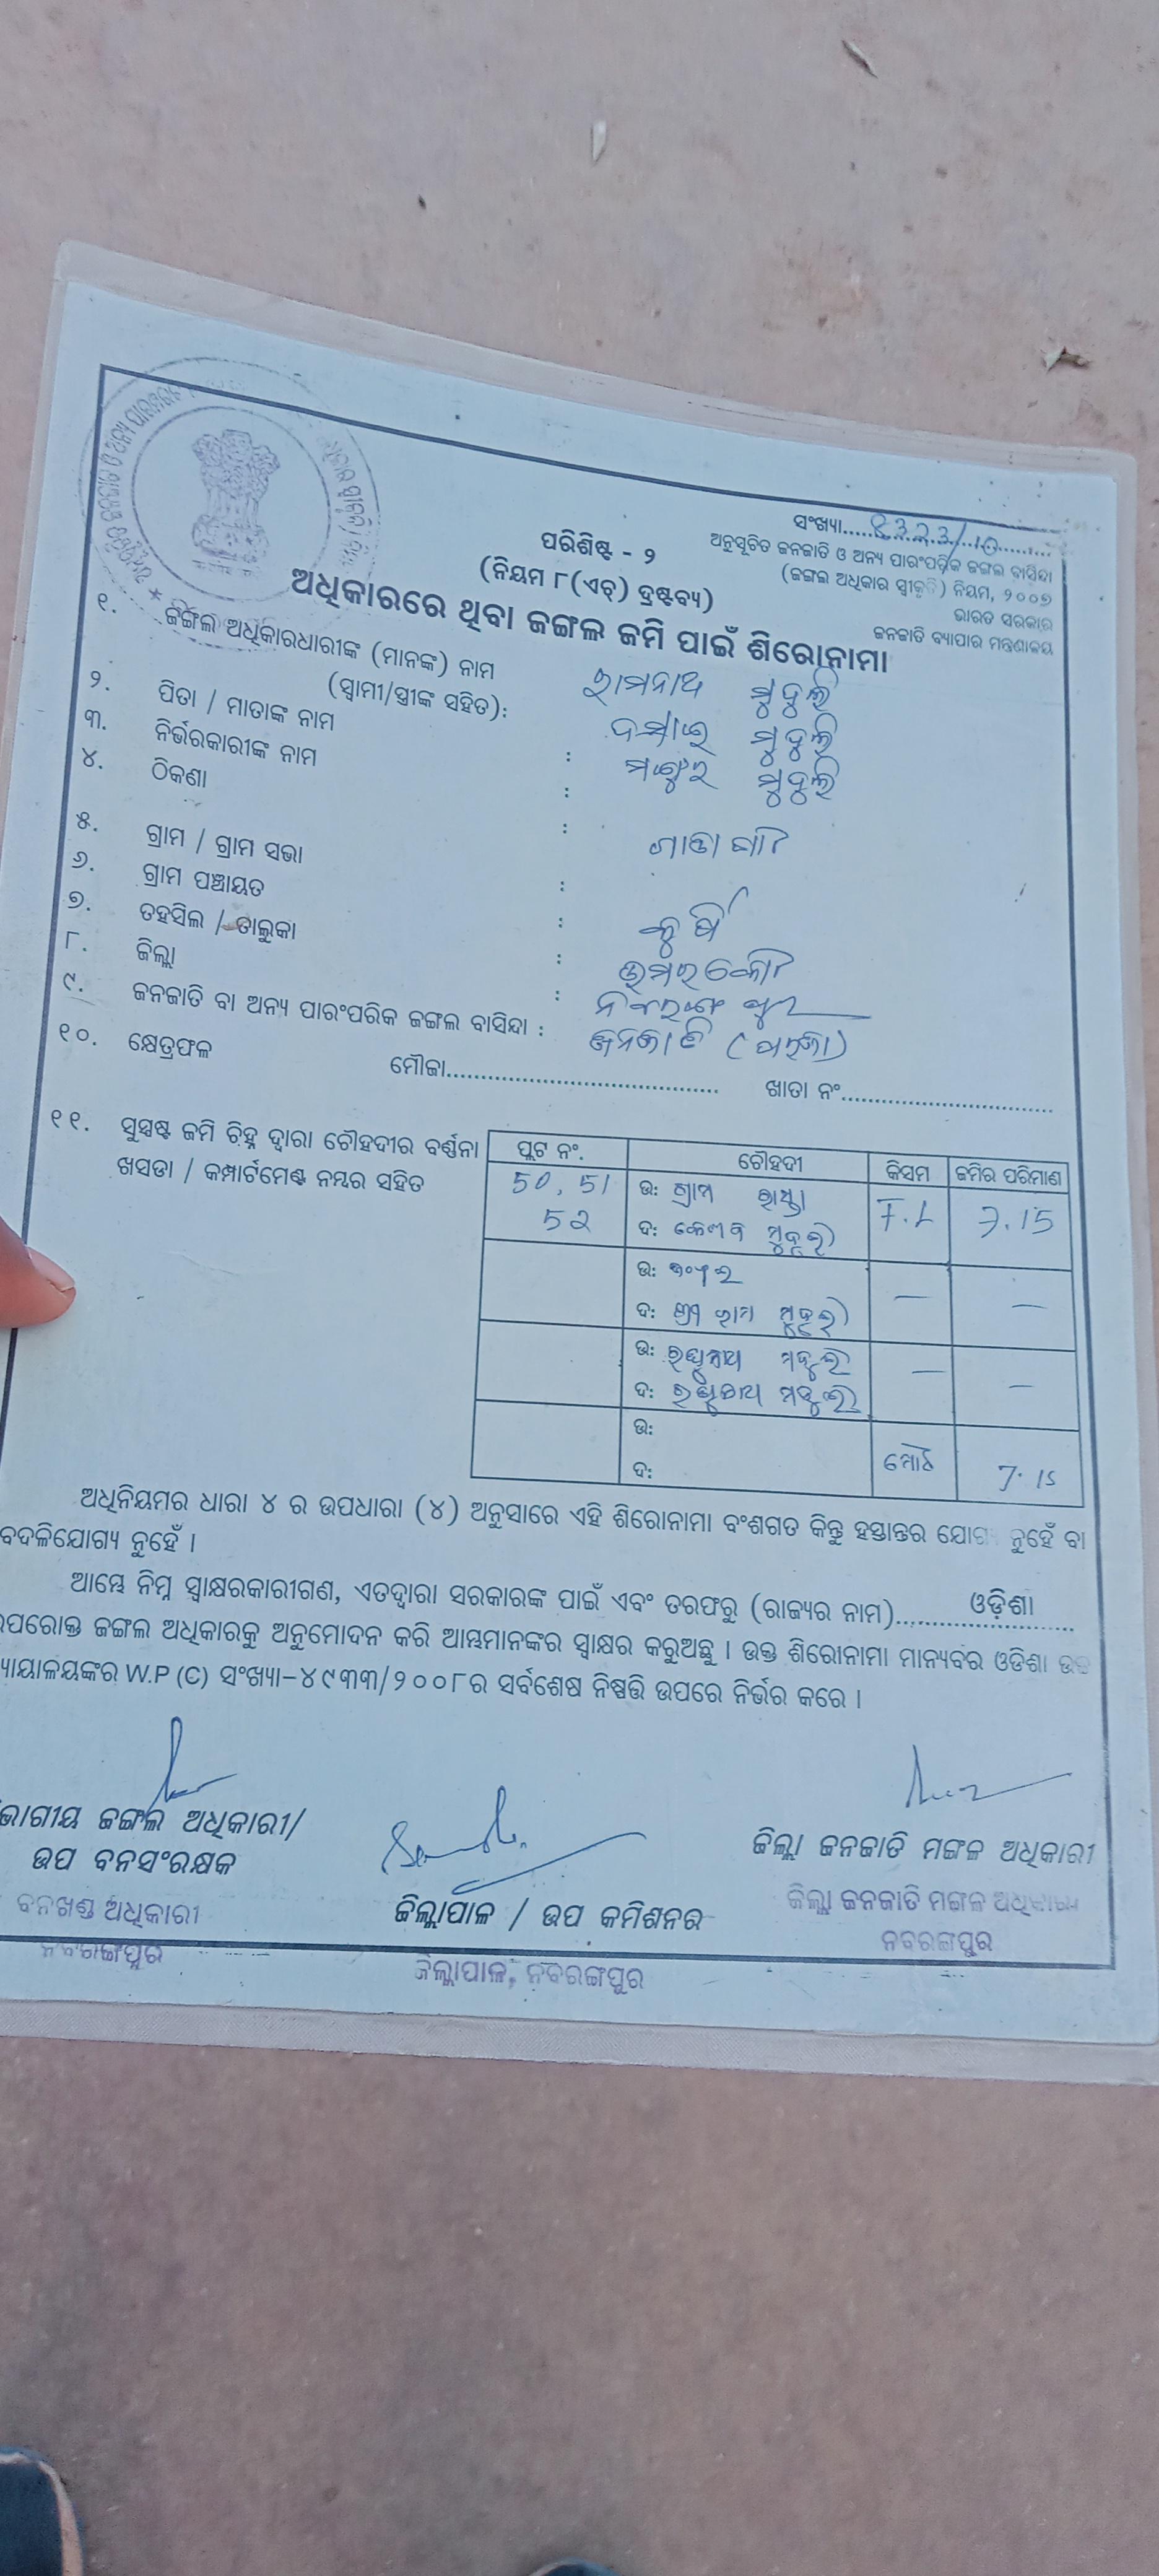 ସଂଖ୍ୟା......8323/10......
ଅନୁସୂଚିତ ଜନଜାତି ଓ ଅନ୍ୟ ପାରଂପରିକ ଜଙ୍ଗଲ ବାସିନ୍ଦା
(ଜଙ୍ଗଲ ଅଧିକାର ସ୍ୱୀକୃତି) ନିୟମ, ୨୦୦୭
ଭାରତ ସରକାର
ଜନଜାତି ବ୍ୟାପାର ମନ୍ତ୍ରଣାଳୟ
ପରିଶିଷ୍ଟ - ୨
(ନିୟମ ୮(ଏଚ୍) ଦ୍ରଷ୍ଟବ୍ୟ)
ଅଧିକାରରେ ଥିବା ଜଙ୍ଗଲ ଜମି ପାଇଁ ଶିରୋନାମା
୧. ଜଙ୍ଗଲ ଅଧିକାରଧାରୀଙ୍କ (ମାନଙ୍କ) ନାମ
(ସ୍ୱାମୀ/ସ୍ତ୍ରୀଙ୍କ ସହିତ): ରାମନାଥ ମୁଦୁଲି
୨. ପିତା / ମାତାଙ୍କ ନାମ : ମୁଦୁଲି
୩. ନିର୍ଭରକାରୀଙ୍କ ନାମ : ମୁଦୁଲି
୪. ଠିକଣା :
୫. ଗ୍ରାମ / ଗ୍ରାମ ସଭା :
୬. ଗ୍ରାମ ପଞ୍ଚାୟତ :
୭. ତହସିଲ / ତାଲୁକା : ଉମରକୋଟ
୮. ଜିଲ୍ଲା : ନବରଙ୍ଗପୁର
୯. ଜନଜାତି ବା ଅନ୍ୟ ପାରଂପରିକ ଜଙ୍ଗଲ ବାସିନ୍ଦା : ଜନଜାତି (ପରଜା)
୧୦. କ୍ଷେତ୍ରଫଳ ମୌଜା........................................ ଖାତା ନଂ................................
୧୧. ସୁସ୍ପଷ୍ଟ ଜମି ଚିହ୍ନ ଦ୍ୱାରା ଚୌହଦୀର ବର୍ଣ୍ଣନା
ଖସଡା / କମ୍ପାର୍ଟମେଣ୍ଟ ନମ୍ବର ସହିତ
ପ୍ଲଟ ନଂ. ଚୌହଦୀ କିସମ ଜମିର ପରିମାଣ
50, 51 ଉ: ଗ୍ରାମ ରାସ୍ତା F.L 7.15
52 ଦ: କେଶବ ମୁଦୁଲି
ଉ: ଜଂଗଲ — —
ଦ: ଶ୍ରୀ ରାମ ମୁଦୁଲି
ଉ: ରଘୁନାଥ ମୁଦୁଲି — —
ଦ: ରଘୁନାଥ ମୁଦୁଲି
ଉ:
ଦ: ମୋଟ 7.15
ଅଧିନିୟମର ଧାରା ୪ ର ଉପଧାରା (୪) ଅନୁସାରେ ଏହି ଶିରୋନାମା ବଂଶଗତ କିନ୍ତୁ ହସ୍ତାନ୍ତର ଯୋଗ୍ୟ ନୁହେଁ ବା
ବଦଳିଯୋଗ୍ୟ ନୁହେଁ ।
ଆମ୍ଭେ ନିମ୍ନ ସ୍ୱାକ୍ଷରକାରୀଗଣ, ଏତଦ୍ୱାରା ସରକାରଙ୍କ ପାଇଁ ଏବଂ ତରଫରୁ (ରାଜ୍ୟର ନାମ).......ଓଡ଼ିଶା.......
ଉପରୋକ୍ତ ଜଙ୍ଗଲ ଅଧିକାରକୁ ଅନୁମୋଦନ କରି ଆମ୍ଭମାନଙ୍କର ସ୍ୱାକ୍ଷର କରୁଅଛୁ । ଉକ୍ତ ଶିରୋନାମା ମାନ୍ୟବର ଓଡିଶା ଉଚ୍ଚ
ନ୍ୟାୟାଳୟଙ୍କର W.P (C) ସଂଖ୍ୟା-୪୯୩୩/୨୦୦୮ର ସର୍ବଶେଷ ନିଷ୍ପତ୍ତି ଉପରେ ନିର୍ଭର କରେ ।
ଭାଗୀୟ ଜଙ୍ଗଲ ଅଧିକାରୀ/
ଉପ ବନସଂରକ୍ଷକ
ବନଖଣ୍ଡ ଅଧିକାରୀ
ନବରଙ୍ଗପୁର
ଜିଲ୍ଲାପାଳ / ଉପ କମିଶନର
ଜିଲ୍ଲାପାଳ, ନବରଙ୍ଗପୁର
ଜିଲ୍ଲା ଜନଜାତି ମଙ୍ଗଳ ଅଧିକାରୀ
ଜିଲ୍ଲା ଜନଜାତି ମଙ୍ଗଳ ଅଧିକାରୀ
ନବରଙ୍ଗପୁର